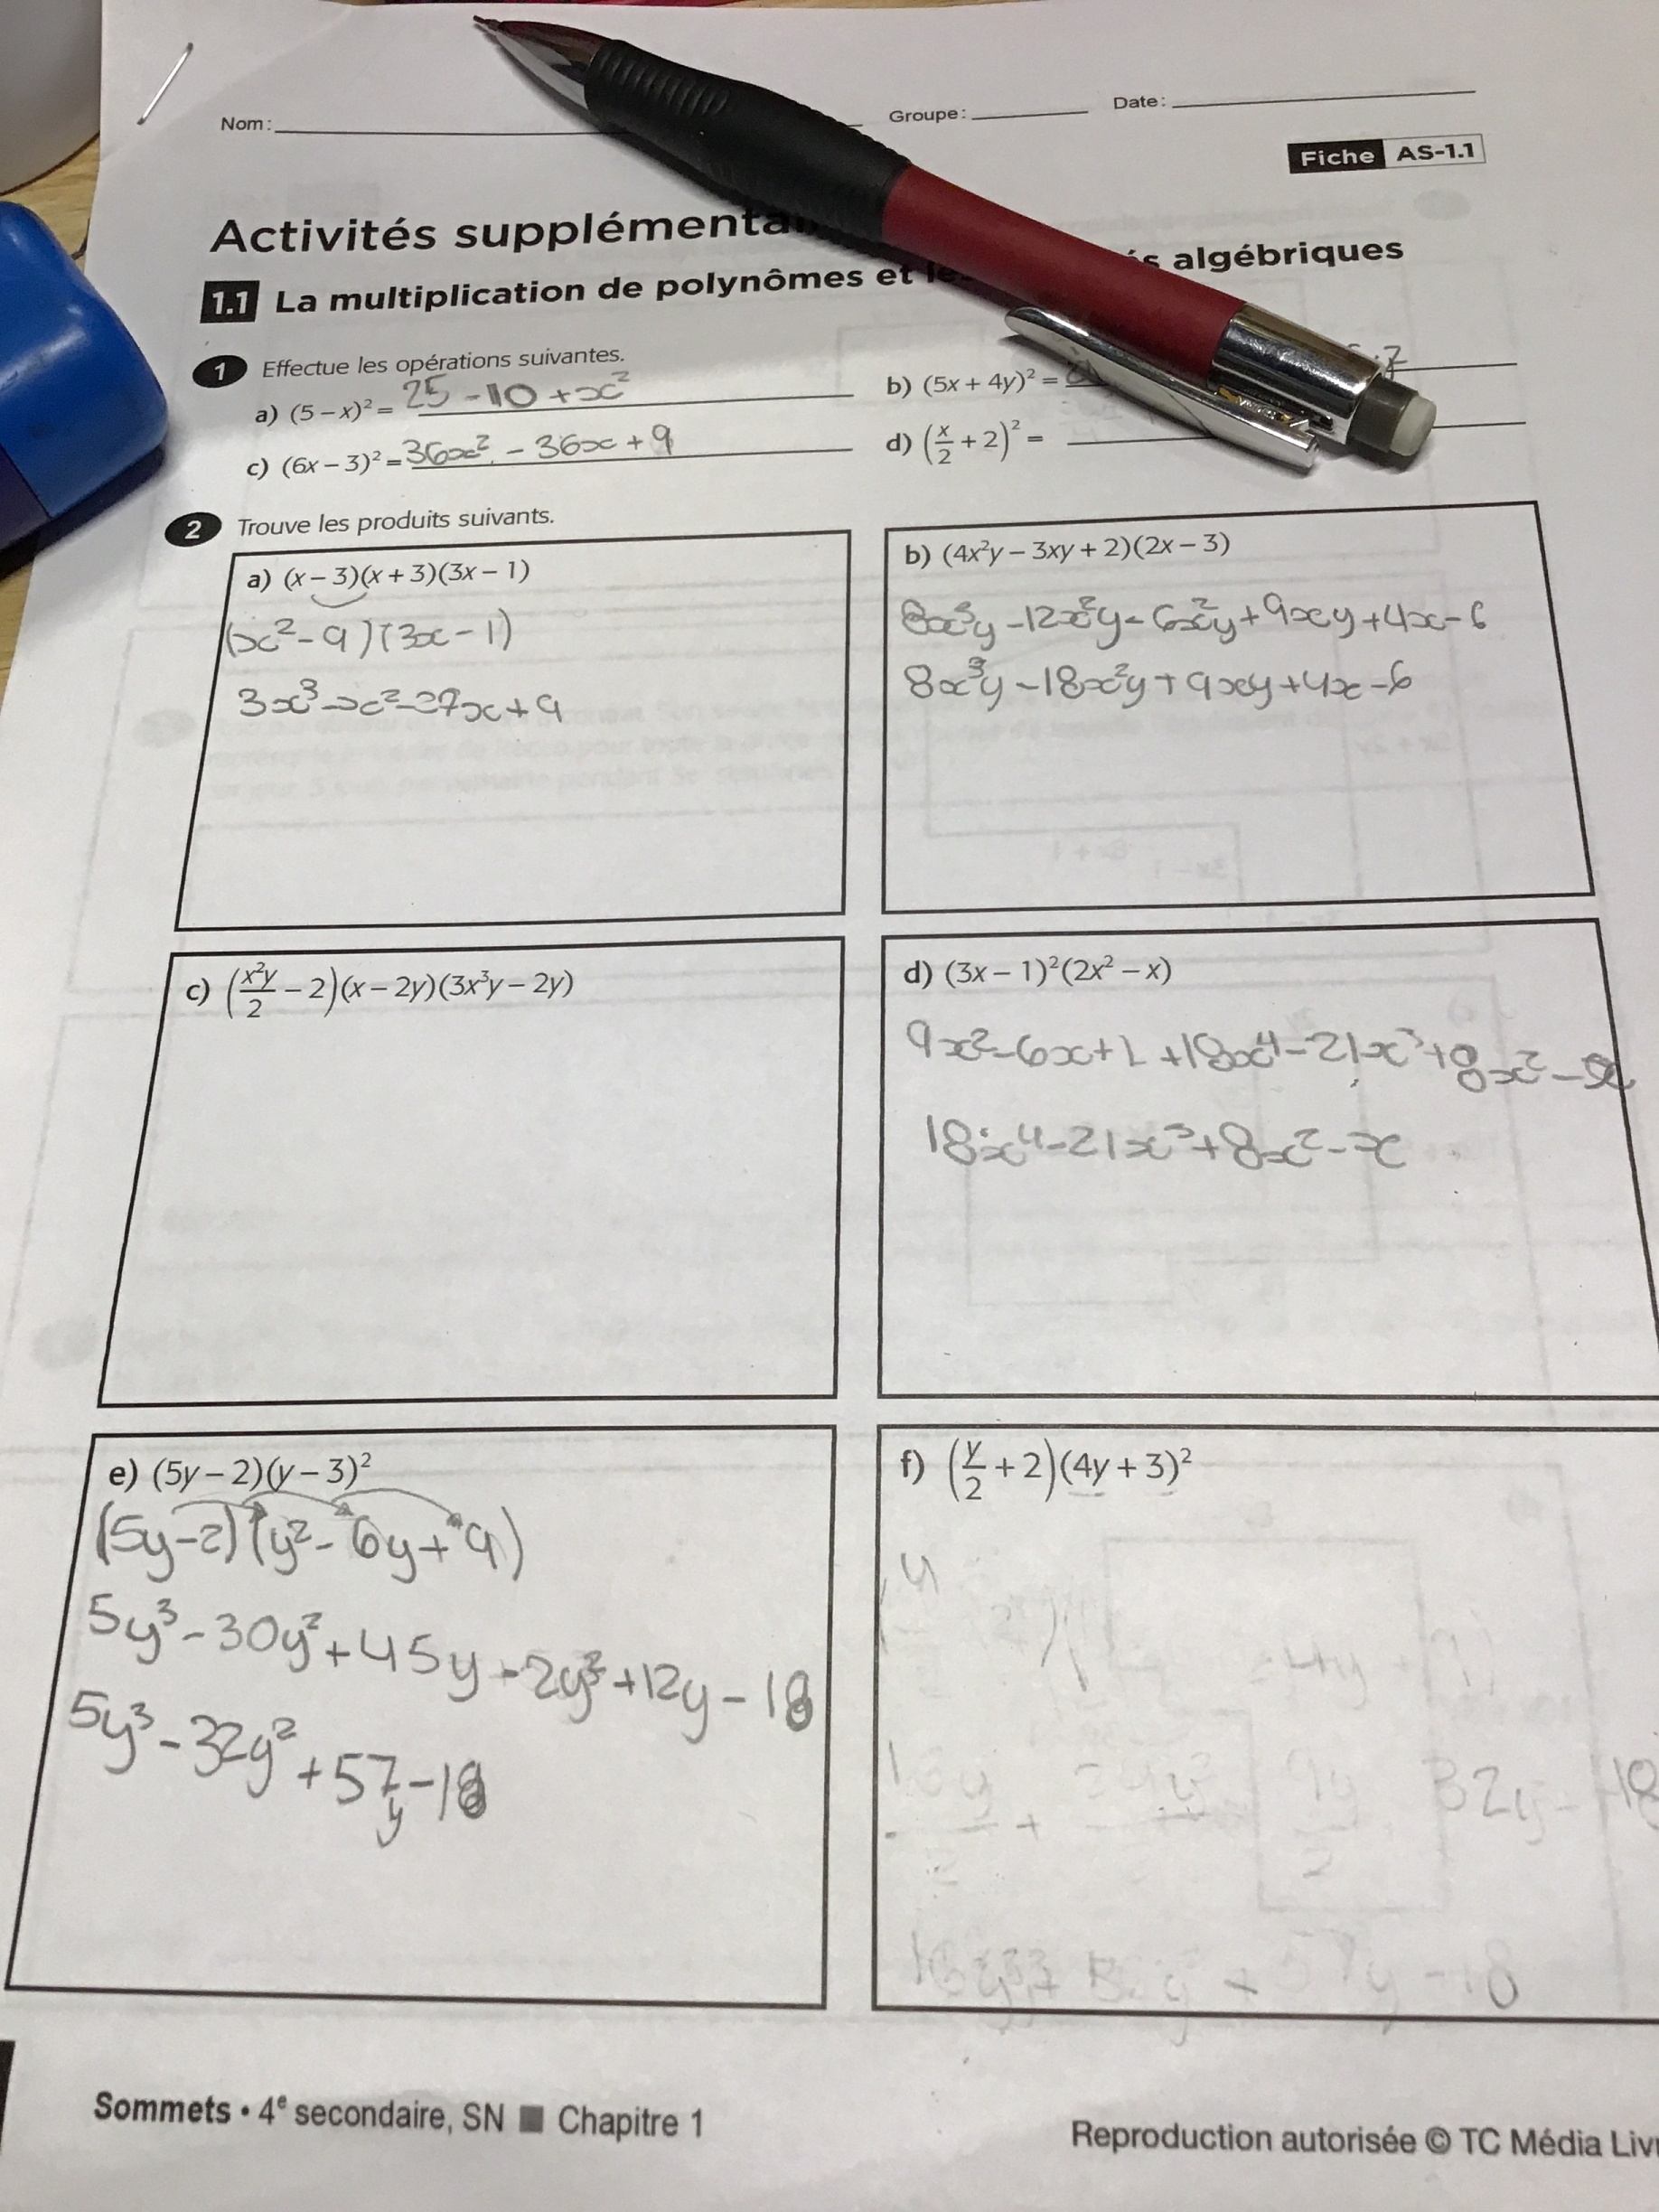 Nom: Groupe: Date:
Fiche AS-1.1
Activités
1.1 La multiplication de polynômes et algébriques
1 Effectue les opérations suivantes.
a) (5 – x)² = 25 - 10 + x²
b) (5x + 4y)² =
c) (6x – 3)² = 36x² - 36x + 9
d) (x/2 + 2)² =
2 Trouve les produits suivants.
a) (x – 3)(x + 3)(3x – 1)
(x² - 9)(3x - 1)
3x³ - x² - 27x + 9
b) (4x²y – 3xy + 2)(2x – 3)
8x³y - 12x²y - 6x²y + 9xy + 4x - 6
8x³y - 18x²y + 9xy + 4x - 6
c) (x²y/2 – 2)(x – 2y)(3x³y – 2y)
d) (3x – 1)²(2x² – x)
9x² - 6x + 1 + 18x⁴ - 21x³ + 8x² -
18x⁴ - 21x³ + 8x² - x
e) (5y – 2)(y – 3)²
(5y - 2)(y² - 6y + 9)
5y³ - 30y² + 45y - 2y² + 12y - 18
5y³ - 32y² + 57y - 18
f) (y/2 + 2)(4y + 3)²
Sommets • 4e secondaire, SN ■ Chapitre 1
Reproduction autorisée © TC Média